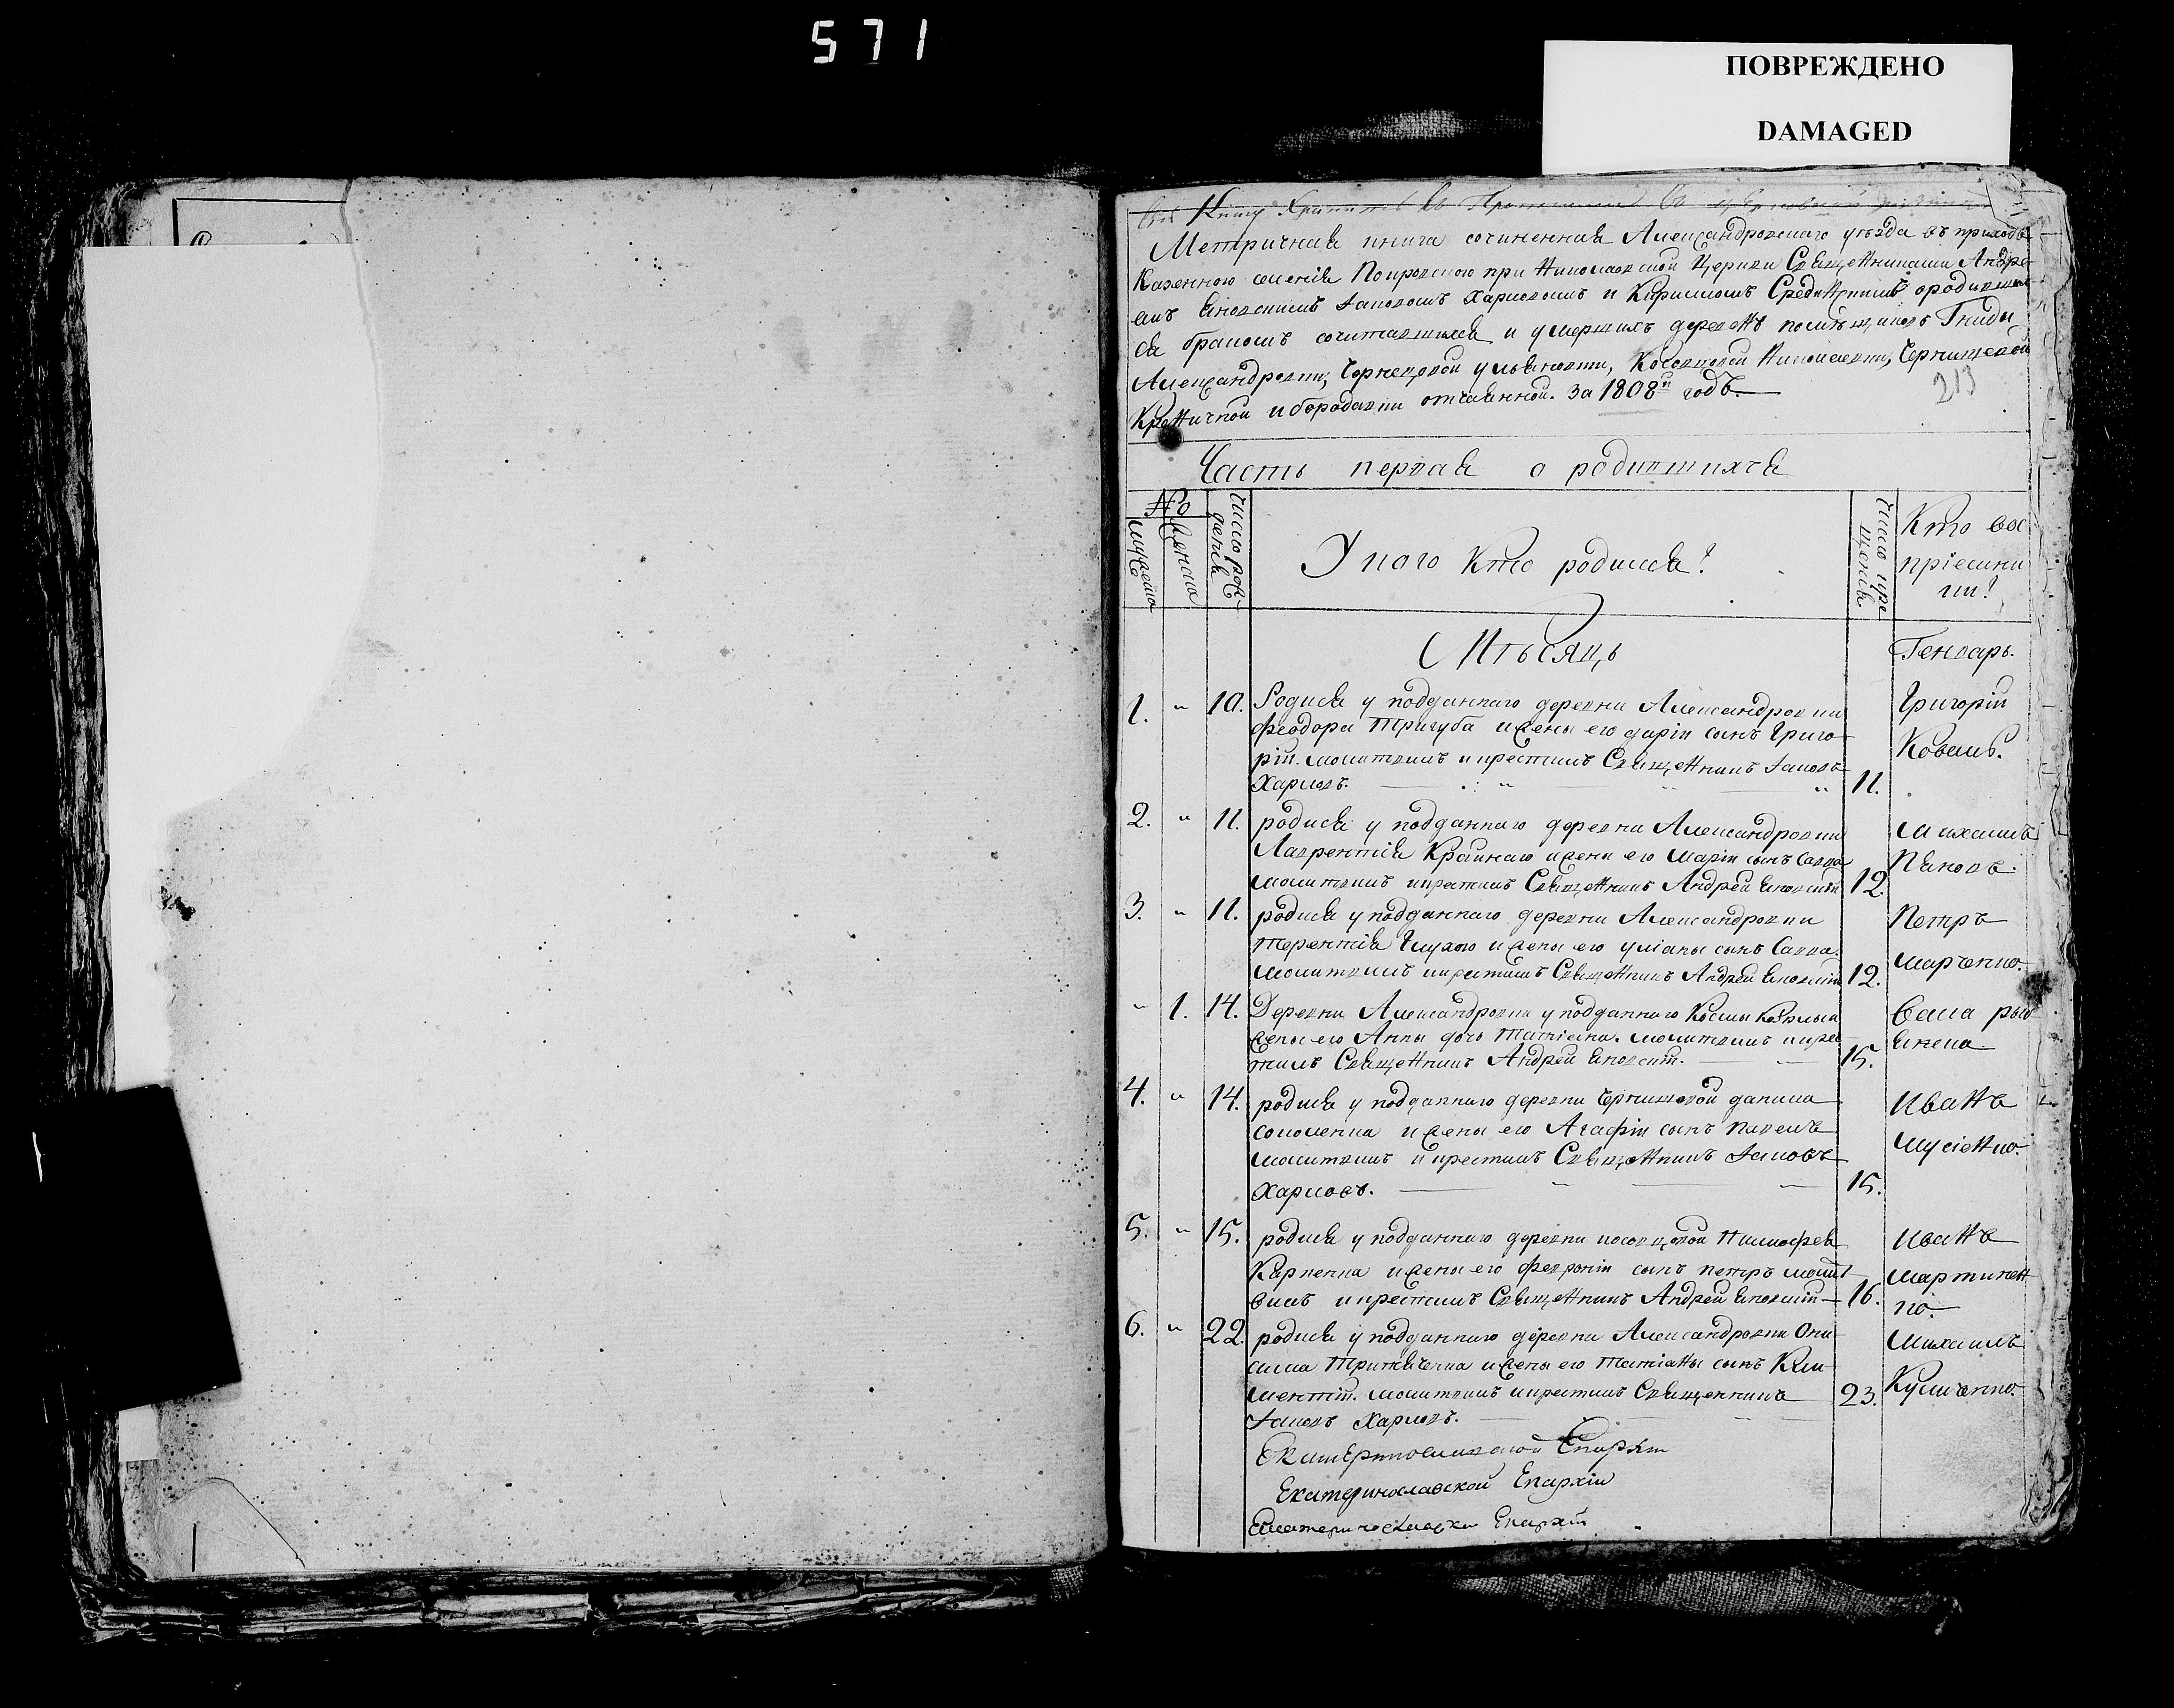 571
ПОВРЕЖДЕНО
DAMAGED
Сію Книгу Хранить въ
Метричная книга сочиненная Александровскаго уѣзда въ приходѣ
Казенного селенія Покровского при Николаевской Церкви Священниками Андре-
емъ Яковъ Харловомъ и Кириломъ о родивших
ся бракомъ сочитавшихся и умершихъ деревнѣ помѣщиковъ Гниды
Александровки, Чернецовой Ульяновки, Косовцовой Николаевки, Чернишевой
Криничной и бородавки отчаянной. За 1808й годъ.
213
Часть первая о родившихся
№
Мужеска
Женска
Число рож-
денія
У кого Кто родился?
Число кре
щенія
Кто вос
пріемни
ки?
Мѣсяцъ Генварь.
1. " 10. Родися у подданнаго деревни Александровки
Феодора Тригуба и жены его Даріи сынъ Григо-
рій. молитвилъ и крестилъ Священникъ Іаковъ
Харловъ. 11.
Григорій
Коваль.
2. " 11. родися у подданнаго деревни Александровки
Лаврентія Крайнаго и жени его Маріи сынъ Савва
молитвилъ и крестилъ Священникъ Андрей 12.
Михаилъ
Пановъ.
3. " 11. родися у подданнаго деревни Александровки
Терентія Глухого и жены его Уліаны сынъ Савва.
молитвилъ и крестилъ Священникъ Андрей 12.
Петръ
Марченко.
" 1. 14. Деревни Александровки у подданнаго Космы
жены его Анны дочь Татіана. молитвилъ и кре
тилъ Священникъ Андрей 15.
4. " 14. родися у подданнаго деревни Чернишовой Данила
Соломенка и жены его Агафіи сынъ Павелъ
молитвилъ и крестилъ Священникъ Іаковъ
Харловъ. 15.
Иванъ
Мусіенко.
5. " 15. родися у подданнаго деревни Косовцовой Никифора
Карпенка и жены его Февроніи сынъ Петръ молит
вилъ и крестилъ Священникъ Андрей 16.
Иванъ
Мартинен
ко.
6. " 22. родися у подданнаго деревни Александровки Они
сима и жены его Татіаны сынъ Кли-
ментій. молитвилъ и крестилъ Священникъ
Іаковъ Харловъ. 23.
Михаилъ
Кулиненко.
Екатеринославской Епархіи
Екатеринославской Епархіи
Екатеринославски Епархіи